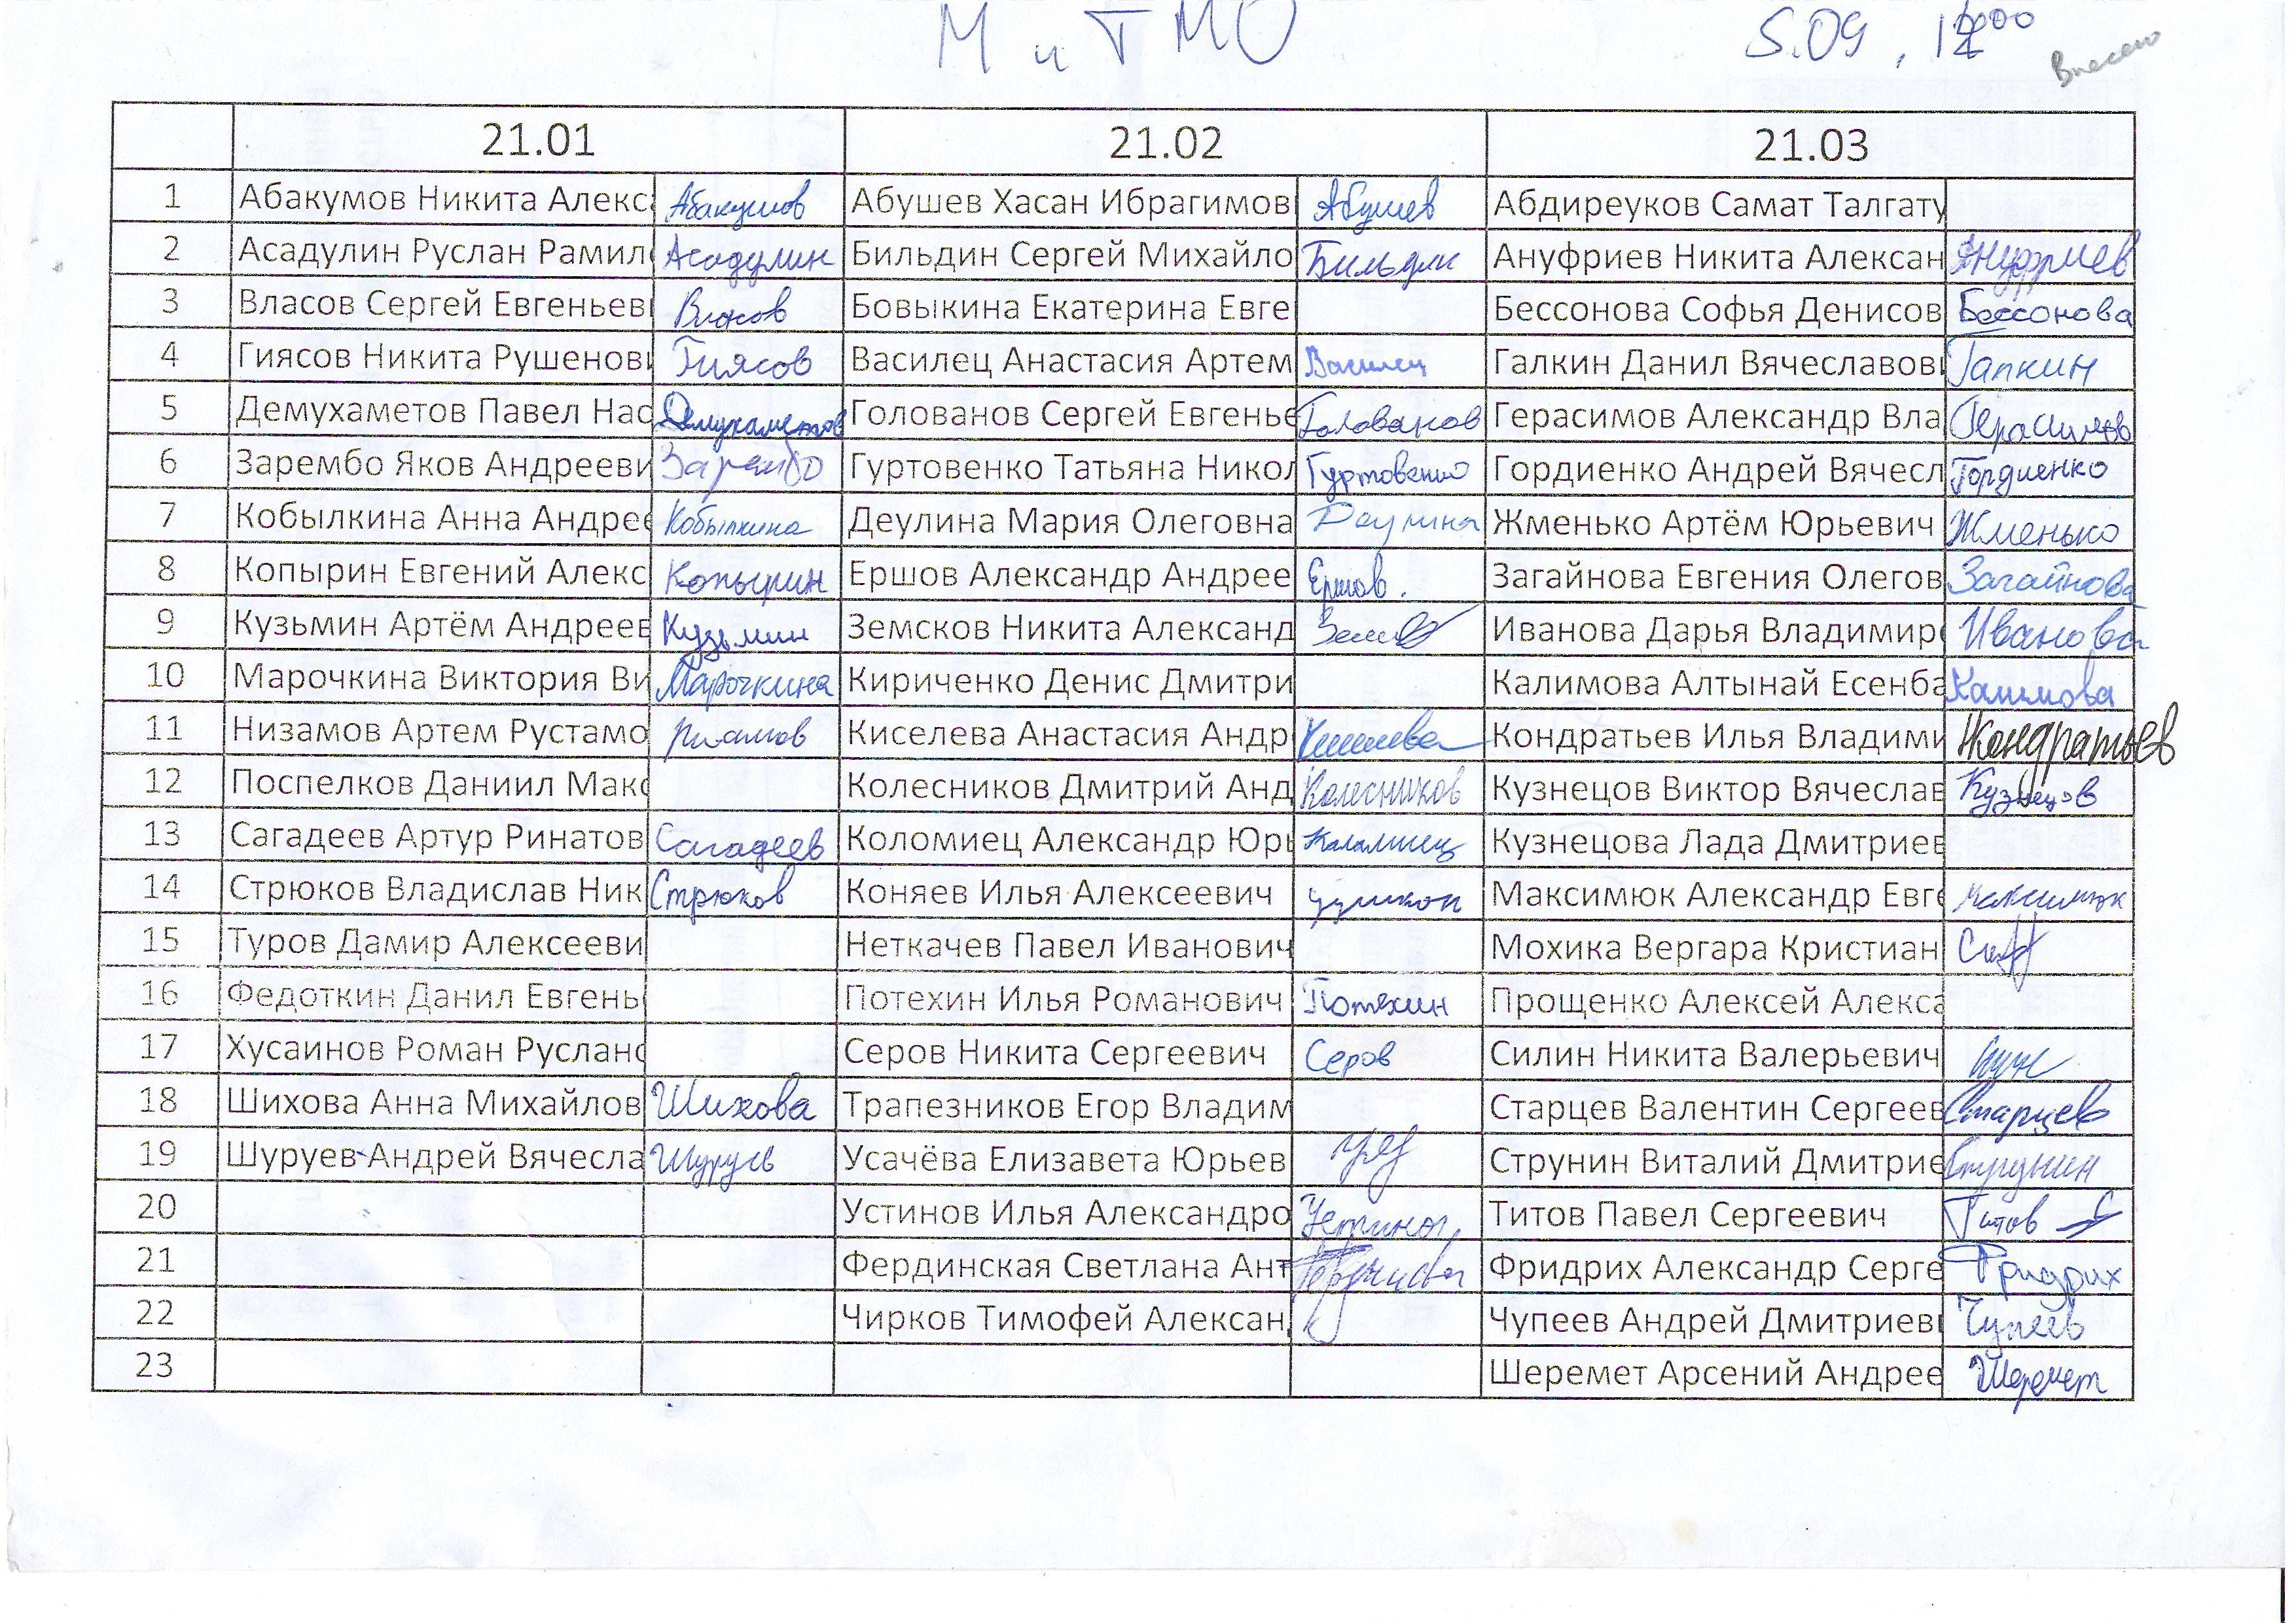 М и ТМО 5.09, 12⁰⁰
Внесено
21.01 21.02 21.03
1 Абакумов Никита Алекса Абакумов Абушев Хасан Ибрагимов Абушев Абдиреуков Самат Талгату
2 Асадулин Руслан Рамил Асадулин Бильдин Сергей Михайло Бильдин Ануфриев Никита Алексан Ануфриев
3 Власов Сергей Евгеньев Власов Бовыкина Екатерина Евге Бессонова Софья Денисов Бессонова
4 Гиясов Никита Рушенови Гиясов Василец Анастасия Артем Василец Галкин Данил Вячеславов Галкин
5 Демухаметов Павел Нас Демухаметов Голованов Сергей Евгенье Голованов Герасимов Александр Вла Герасимов
6 Зарембо Яков Андрееви Зарембо Гуртовенко Татьяна Никол Гуртовенко Гордиенко Андрей Вячесл Гордиенко
7 Кобылкина Анна Андрее Кобылкина Деулина Мария Олеговна Деулина Жменько Артём Юрьевич Жменько
8 Копырин Евгений Алекс Копырин Ершов Александр Андрее Ершов. Загайнова Евгения Олегов Загайнова
9 Кузьмин Артём Андреев Кузьмин Земсков Никита Александ Иванова Дарья Владимир Иванова
10 Марочкина Виктория Ви Марочкина Кириченко Денис Дмитри Калимова Алтынай Есенба Калимова
11 Низамов Артем Рустамо Низамов Киселева Анастасия Андр Киселева Кондратьев Илья Владими Кондратьев
12 Поспелков Даниил Макс Колесников Дмитрий Анд Колесников Кузнецов Виктор Вячеслав Кузнецов
13 Сагадеев Артур Ринатов Сагадеев Коломиец Александр Юрь Коломиец Кузнецова Лада Дмитриев
14 Стрюков Владислав Ник Стрюков Коняев Илья Алексеевич Максимюк Александр Евге Максимюк
15 Туров Дамир Алексееви Неткачев Павел Иванович Мохика Вергара Кристиан
16 Федоткин Данил Евгень Потехин Илья Романович Потехин Прощенко Алексей Алекса
17 Хусаинов Роман Руслано Серов Никита Сергеевич Серов Силин Никита Валерьевич
18 Шихова Анна Михайлов Шихова Трапезников Егор Владим Старцев Валентин Сергеев Старцев
19 Шуруев Андрей Вячесла Шуруев Усачёва Елизавета Юрьев Струнин Виталий Дмитрие Струнин
20 Устинов Илья Александро Устинов Титов Павел Сергеевич Титов
21 Фердинская Светлана Ант Фридрих Александр Серге Фридрих
22 Чирков Тимофей Алексан Чупеев Андрей Дмитриев Чупеев
23 Шеремет Арсений Андрее Шеремет